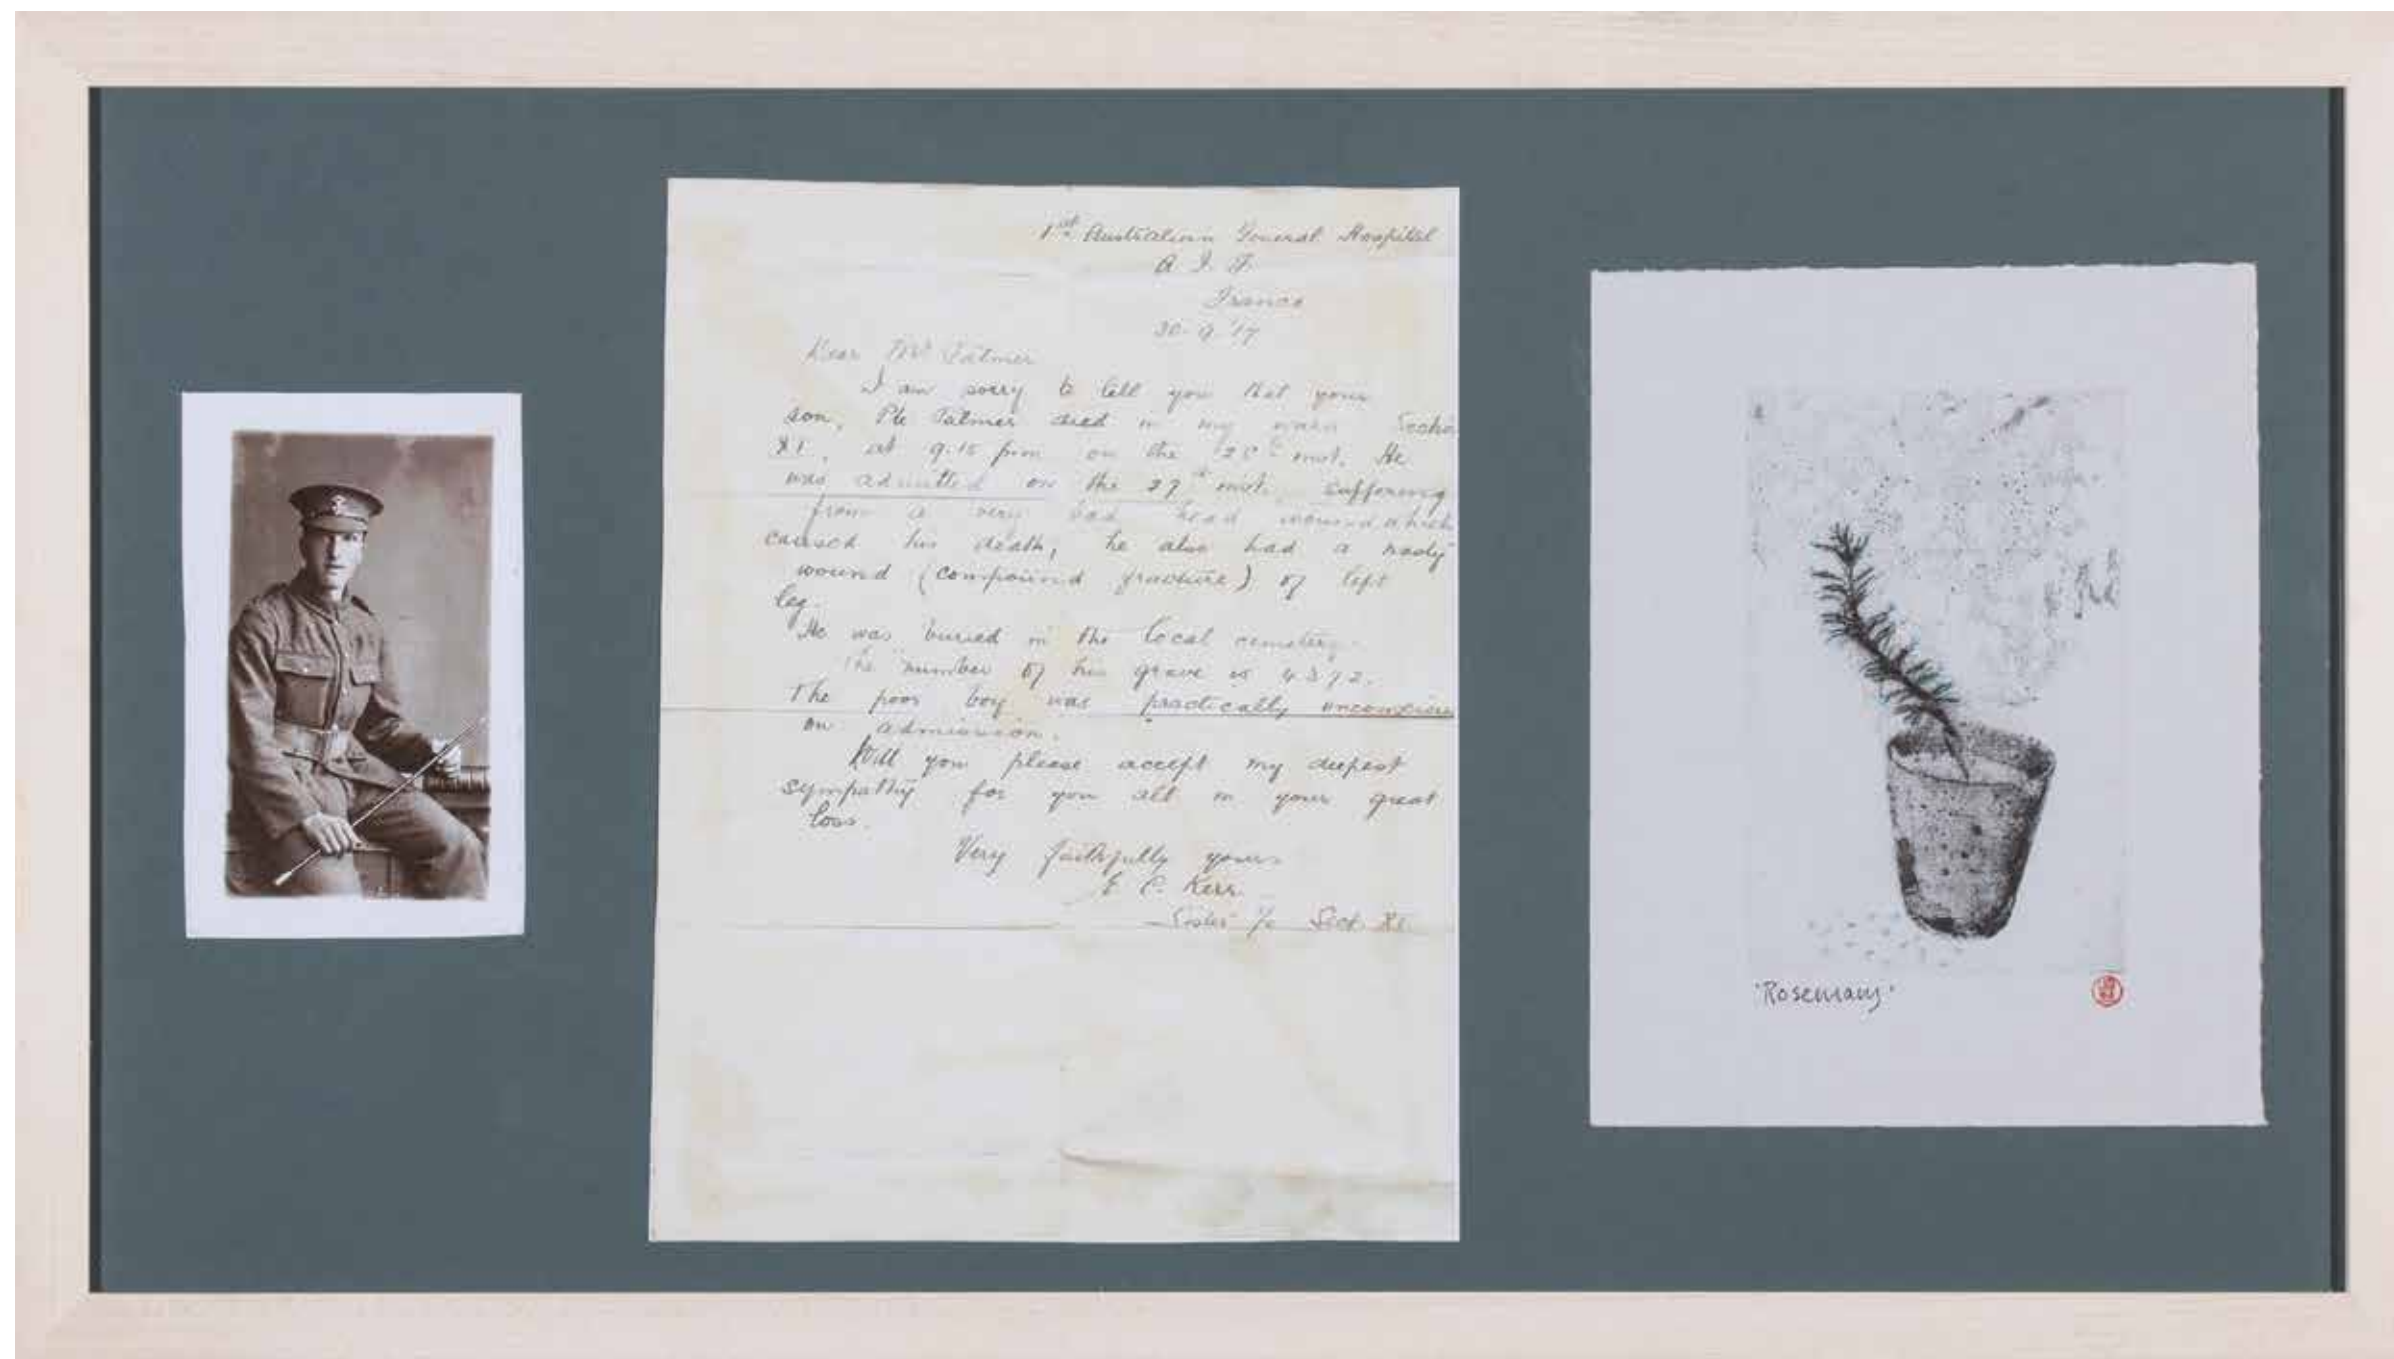 1st Australian General Hospital
A. I. F.
France
30.9.'17
Dear Mr
I am sorry to tell you that your
son, Pte died in my ward
XI, at 9.15 pm on the inst. He
was admitted on the 27th inst. suffering
from a very bad head wound which
caused his death, he also had a nasty
wound (compound fracture) of left
leg.
He was buried in the local cemetery.
The number of his grave is
The poor boy was practically unconscious
on admission.
Will you please accept my deepest
sympathy for you all in your great
loss.
Very faithfully yours
E C. Kerr
Sister i/c Sect. XI.
'Rosemary'